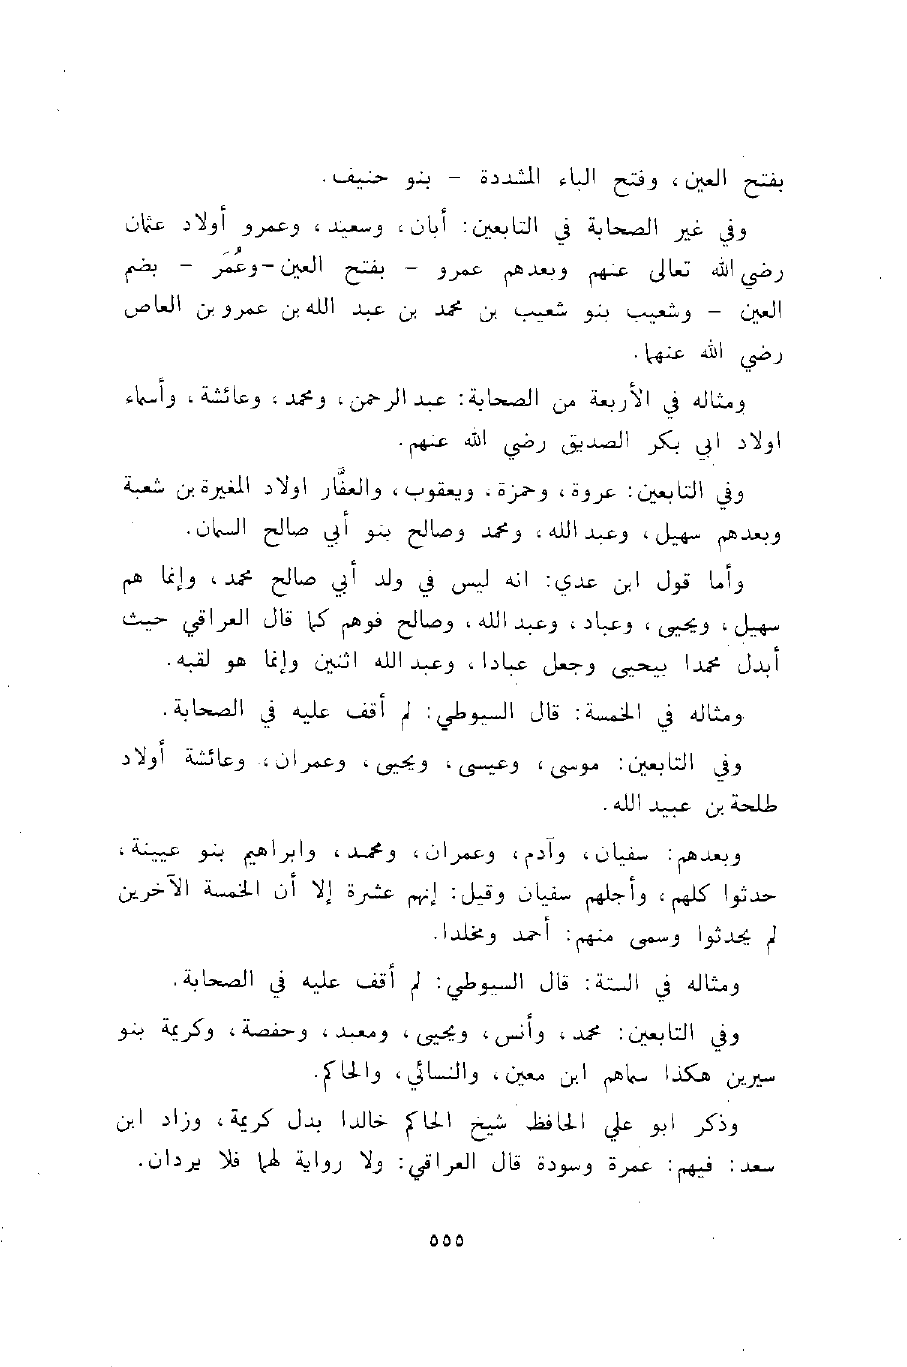 بفتح العين، وفتح الباء المشددة - بنو حنيف.
وفي غير الصحابة في التابعين: أبان، وسعيد، وعمرو أولاد عثمان
رضي الله تعالى عنهم وبعدهم عمرو - بفتح العين - وعُمَر - بضم
العين - وشعيب بنو شعيب بن محمد بن عبد الله بن عمرو بن العاص
رضي الله عنهما.
ومثاله في الأربعة من الصحابة: عبد الرحمن، ومحمد، وعائشة، وأسماء
اولاد ابي بكر الصديق رضي الله عنهم.
وفي التابعين: عروة، وحمزة، ويعقوب، والعفَّار اولاد المغيرة بن شعبة
وبعدهم سهيل، وعبد الله، ومحمد وصالح بنو أبي صالح السمان.
وأما قول ابن عدي: انه ليس في ولد أبي صالح محمد، وإنما هم
سهيل، ويحيى، وعباد، وعبد الله، وصالح فوهم كما قال العراقي حيث
أبدل محمدا بيحيى وجعل عبادا، وعبد الله اثنين وإنما هو لقبه.
ومثاله في الخمسة: قال السيوطي: لم أقف عليه في الصحابة.
وفي التابعين: موسى، وعيسى، ويحيى، وعمران، وعائشة أولاد
طلحة بن عبيد الله.
وبعدهم: سفيان، وآدم، وعمران، ومحمد، وابراهيم بنو عيينة،
حدثوا كلهم، وأجلهم سفيان وقيل: إنهم عشرة إلا أن الخمسة الآخرين
لم يحدثوا وسمى منهم: أحمد ومخلدا.
ومثاله في الستة: قال السيوطي: لم أقف عليه في الصحابة.
وفي التابعين: محمد، وأنس، ويحيى، ومعبد، وحفصة، وكريمة بنو
سيرين هكذا سماهم ابن معين، والنسائي، والحاكم.
وذكر ابو علي الحافظ شيخ الحاكم خالدا بدل كريمة، وزاد ابن
سعد: فيهم: عمرة وسودة قال العراقي: ولا رواية لهما فلا يردان.
٥٥٥